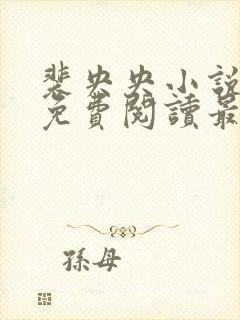 裴央央小說
免費閱讀最
孫母